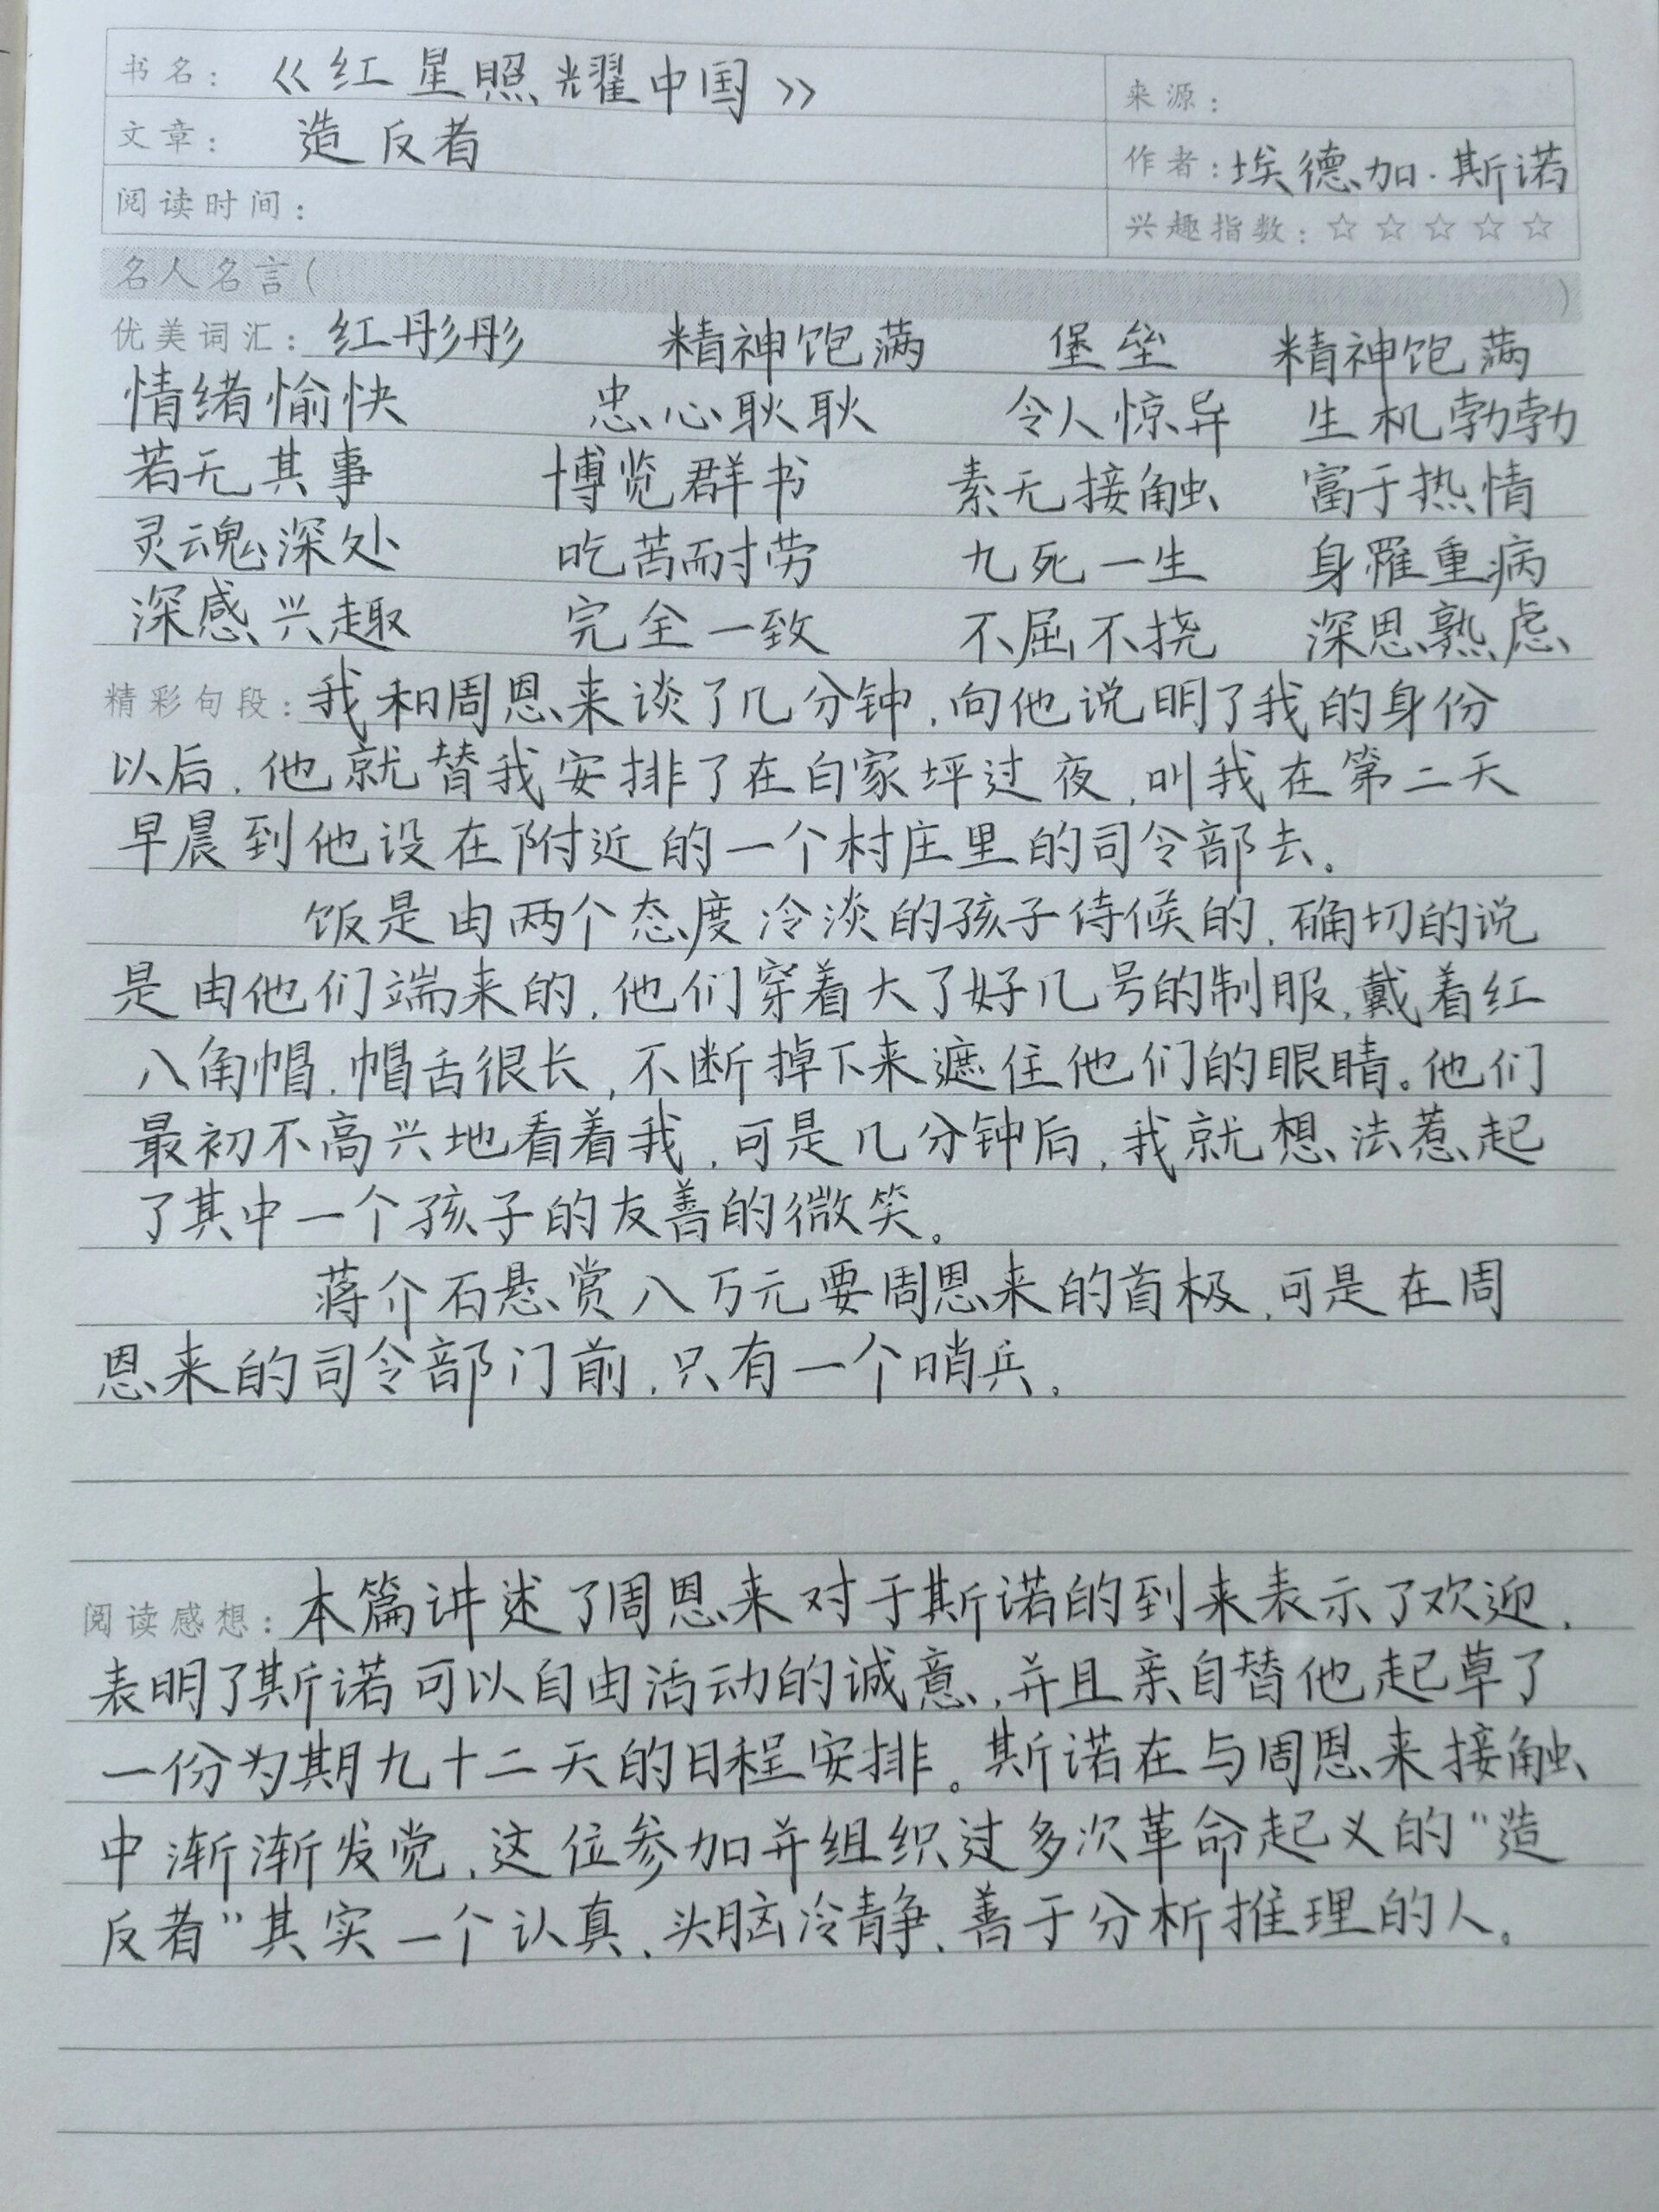 书名： 《红星照耀中国》
来源：
文章： 造反者
作者：埃德加·斯诺
阅读时间：
兴趣指数：☆☆☆☆☆
名人名言（ ）
优美词汇：红彤彤 精神饱满 堡垒 精神饱满
情绪愉快 忠心耿耿 令人惊异 生机勃勃
若无其事 博览群书 素无接触 富于热情
灵魂深处 吃苦耐劳 九死一生 身罹重病
深感兴趣 完全一致 不屈不挠 深思熟虑
精彩句段：我和周恩来谈了几分钟，向他说明了我的身份
以后，他就替我安排了在白家坪过夜，叫我在第二天
早晨到他设在附近的一个村庄里的司令部去。
饭是由两个态度冷淡的孩子侍候的，确切的说
是由他们端来的，他们穿着大了好几号的制服，戴着红
八角帽，帽舌很长，不断掉下来遮住他们的眼睛。他们
最初不高兴地看着我，可是几分钟后，我就想法惹起
了其中一个孩子的友善的微笑。
蒋介石悬赏八万元要周恩来的首极，可是在周
恩来的司令部门前，只有一个哨兵。
阅读感想：本篇讲述了周恩来对于斯诺的到来表示了欢迎，
表明了斯诺可以自由活动的诚意，并且亲自替他起草了
一份为期九十二天的日程安排。斯诺在与周恩来接触
中渐渐发觉，这位参加并组织过多次革命起义的“造
反者”其实一个认真、头脑冷静、善于分析推理的人。